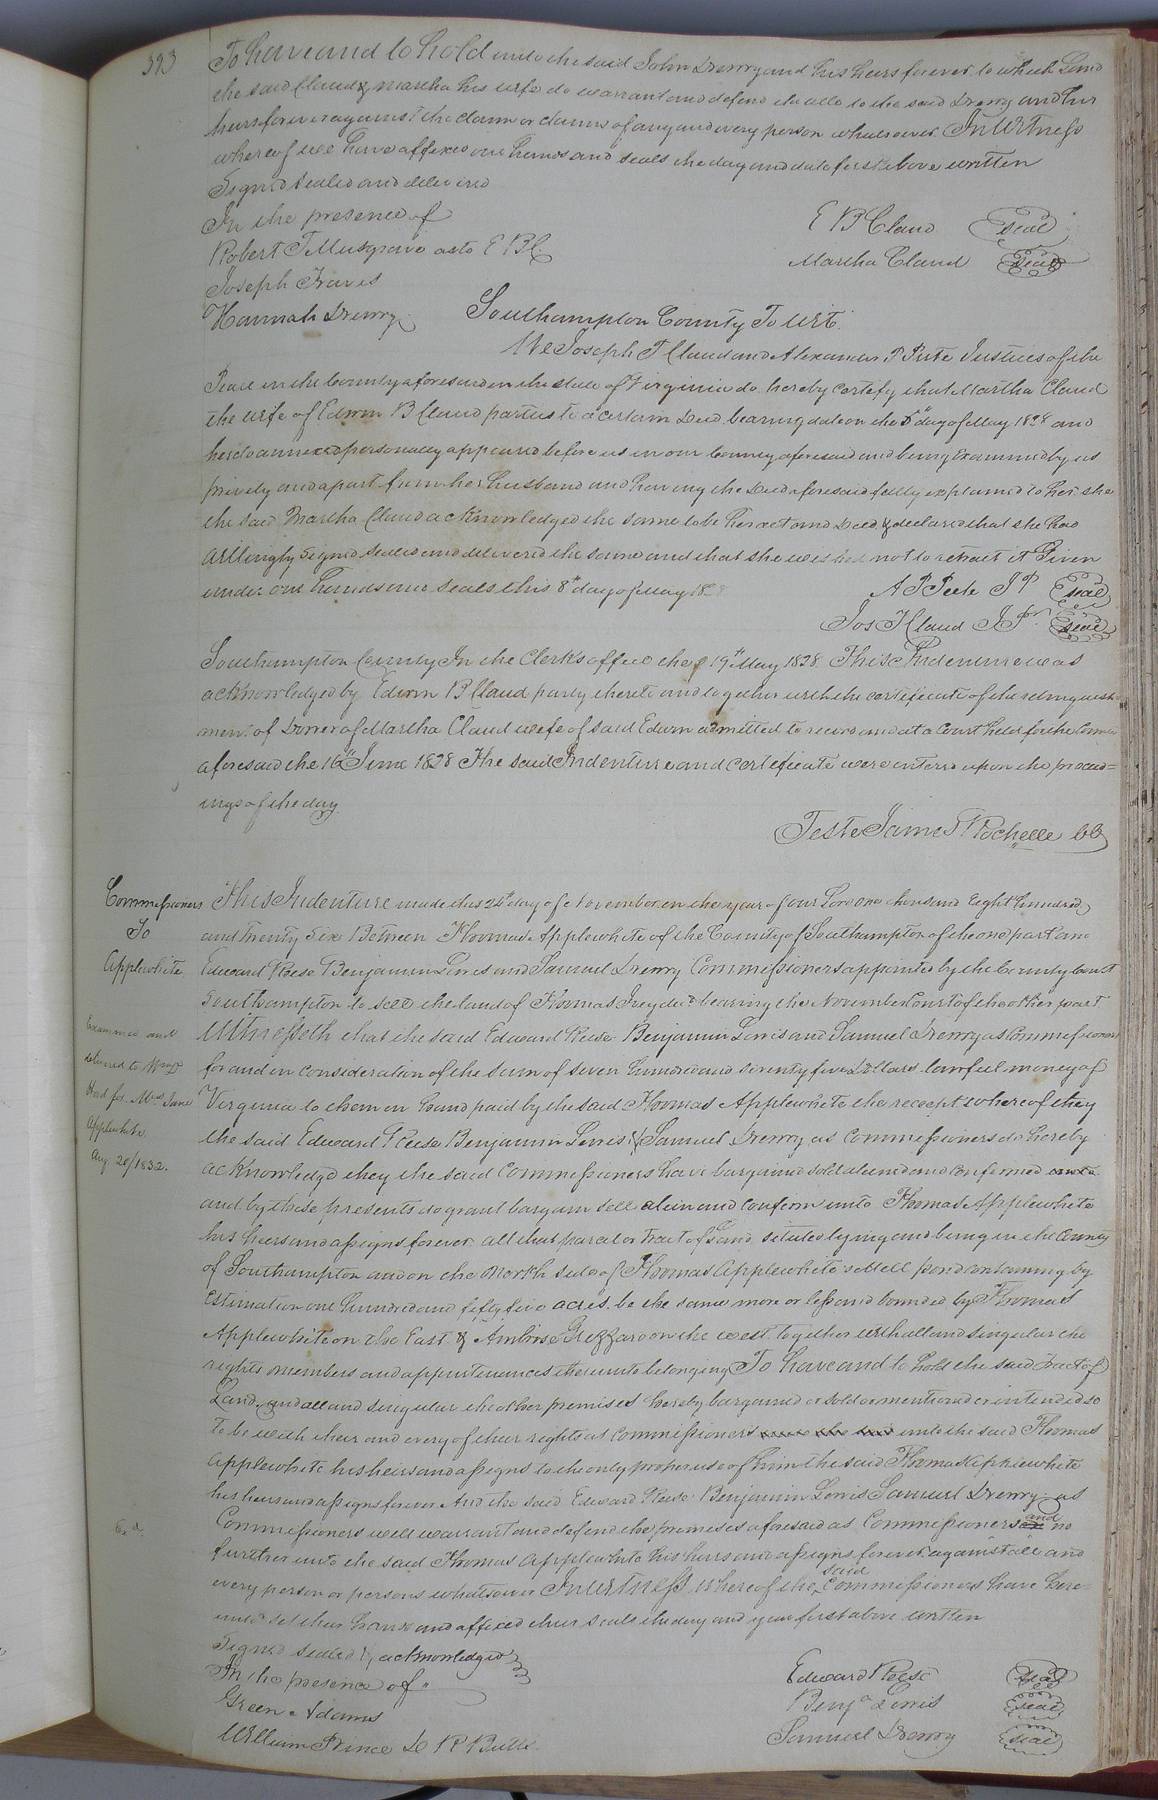 393
To have and to hold unto the said John Drewry and his heirs forever to which Land
the said Claud & Martha his wife do warrant and defend the title to the said Drewry and his
heirs forever against the claim or claims of any and every person whatsoever In Witness
whereof we have affixed our hands and seals the day and date first above written
Signed sealed and delivered
In the presence of
E B Claud seal
Robert T Musgrave as to E B C
Martha Claud seal
Joseph Travis
Hannah Drewry
Southampton County To Wit.
We Joseph T Claud and Alexander P Peete Justices of the
Peace in the County aforesaid in the state of Virginia do hereby certify that Martha Claud
the wife of Edwin B Claud parties to a certain Deed bearing date on the 5th day of May 1828 and
hereto annexed personally appeared before us in our County aforesaid and being Examined by us
privily and apart from her husband and having the Deed aforesaid fully explained to her she
the said Martha Claud acknowledged the same to be her act and Deed & declared that she had
willingly Signed sealed and delivered the same and that she wished not to retract it Given
under our hands and seals this 8th day of May 1828
A P Peete JP seal
Jos T Claud JP seal
Southampton County In the Clerks office the 19th May 1828 This Indenture was
acknowledged by Edwin B Claud party thereto and together with the certificate of the relinquish
ment of Dower of Martha Claud wife of said Edwin admitted to record and at a Court held for the County
aforesaid the 16th June 1828 The said Indenture and certificate were entered upon the proceed=
ings of the day
Teste James Rochelle CC
Commissioners
To
Applewhite
Examined and
delivered to
for Mrs Jane
Applewhite
Aug 20/1832.
This Indenture made this 24th day of November in the year of our Lord one thousand Eight hundred
and Twenty Six Between Thomas Applewhite of the County of Southampton of the one part and
Edward Reese Benjamin Lewis and Samuel Drewry Commissioners appointed by the County Court
Southampton to sell the land of Thomas bearing the November Court of the other part
Witnesseth that the said Edward Reese Benjamin Lewis and Samuel Drewry as Commissioners
for and in consideration of the sum of seven hundred and seventy five Dollars lawful money of
Virginia to them in hand paid by the said Thomas Applewhite the receipt whereof they
the said Edward Reese Benjamin Lewis & Samuel Drewry as Commissioners do hereby
acknowledge they the said Commissioners have bargained sold aliened and confirmed
and by these presents do grant bargain sell alien and confirm unto Thomas Applewhite
his heirs and assigns forever all that parcel or Tract of Land situate lying and being in the County
of Southampton and on the North side of Thomas Applewhite's Mill pond containing by
Estimation one hundred and fifty five acres be the same more or less and bounded by Thomas
Applewhite on the East & Ambrose Grizzard on the west together with all and singular the
rights members and appurtenances thereunto belonging To have and to hold the said Tract of
Land and all and singular the other premises hereby bargained or sold or mentioned or intended so
to be with their and every of their rights as Commissioners unto the said Thomas
Applewhite his heirs and assigns to the only proper use of him the said Thomas Applewhite
his heirs and assigns forever And the said Edward Reese Benjamin Lewis Samuel Drewry as
Commissioners will warrant and defend the premises aforesaid as Commissioners and no
further unto the said Thomas Applewhite his heirs and assigns forever against all and
every person or persons whatsoever In Witness whereof the said Commissioners have here
unto set their hands and affixed their seals the day and year first above written
Signed sealed & acknowledged
In the presence of
Edward Reese seal
Green Adams
Benja Lewis seal
William Prince
Samuel Drewry seal